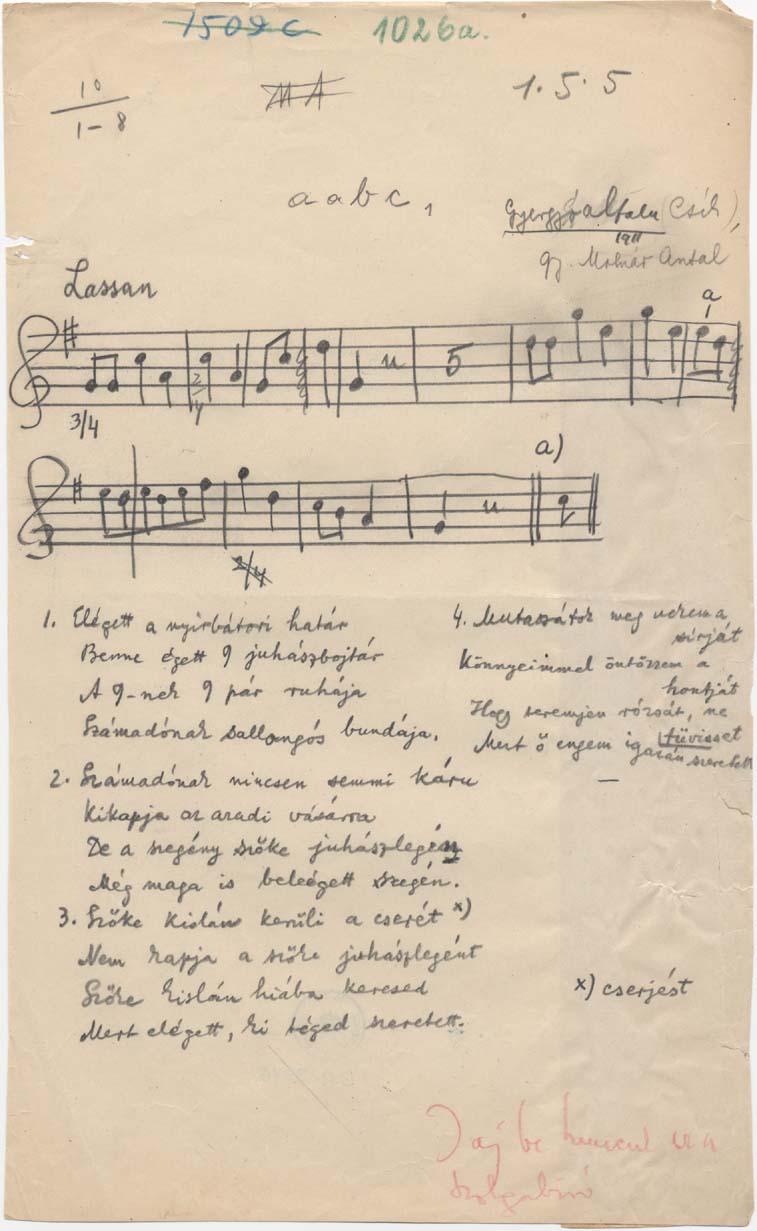 1502c 1026a.
10
1-8
MA
1. 5. 5
a a b c,
Gyergyóalfalu (Csík),
1911
gy. Molnár Antal
Lassan
a
3/4
2/4
5
a)
2/4
1. Elégett a nyirbátori határ
Benne égett 9 juhászbojtár
A 9-nek 9 pár ruhája
Számadónak sallangós bundája.
2. Számadónak nincsen semmi kára
Kikapja az aradi vásárra
De a szegény szőke juhászlegény
Még maga is beleégett szegén.
3. Szőke kislán kerüli a cserét x)
Nem kapja a szőke juhászlegént
Szőke kislán hiába keresed
Mert elégett, ki téged szeretett.
4. Mutassátok meg nekem a
sirját
Könnyeimmel öntözzem a
hantját
Hogy teremjen rózsát, ne
füvisset
Mert ő engem igazán szeretett
x) cserjést
Jaj be
szolgabiró